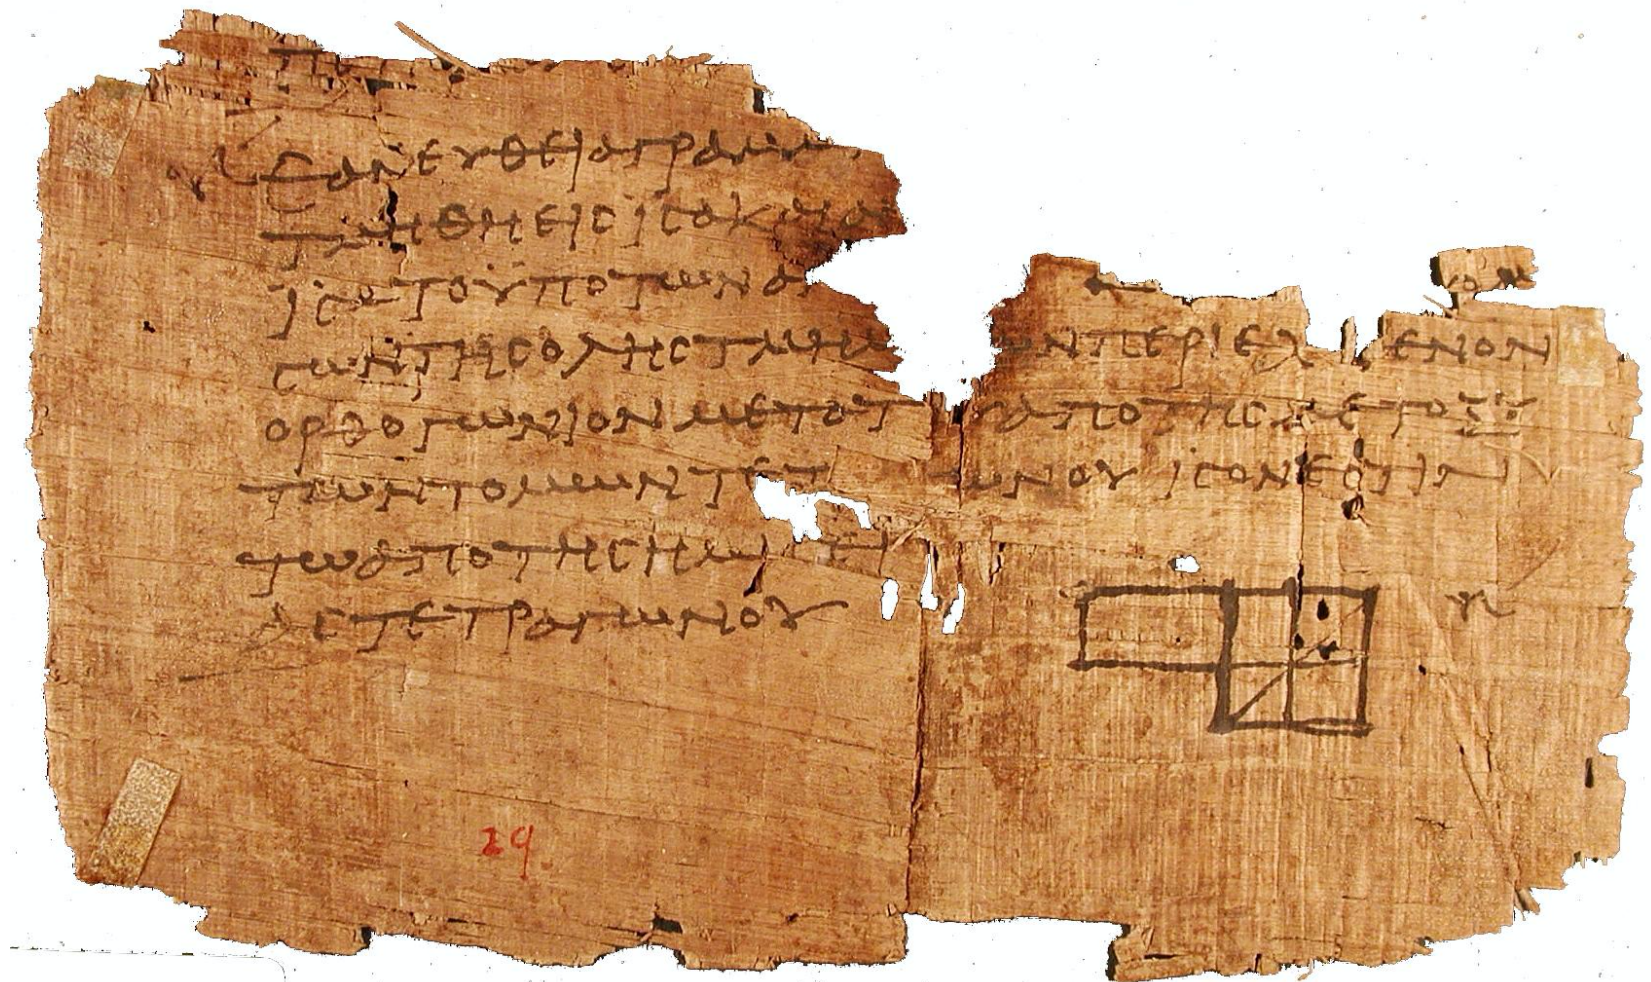 ΕΑΝΕΥΘΕΙΑΓΡΑΜΜ
ΤΜΗΘΗΕΙϹΙϹΑΚΑΙΑΝ
ΙϹΑΤΟΫΠΟΤΩΝΑΝ
ϹΩΝΤΗϹΟΛΗϹΤΜΗΜ ΩΝΠΕΡΙΕΧ ΜΕΝΟΝ
ΟΡΘΟΓΩΝΙΟΝΜΕΤΟΤ ΥΑΠΟΤΗϹΜΕΤΟΞΥ
ΤΩΝΤΟΜΩΝΤΕΤ ΩΝΟΥΙϹΟΝΕϹΤΙΝ
ΤΩΑΠΟΤΗϹΗΜΙϹΕΙ
ΑϹΤΕΤΡΑΓΩΝΟΥ
29.